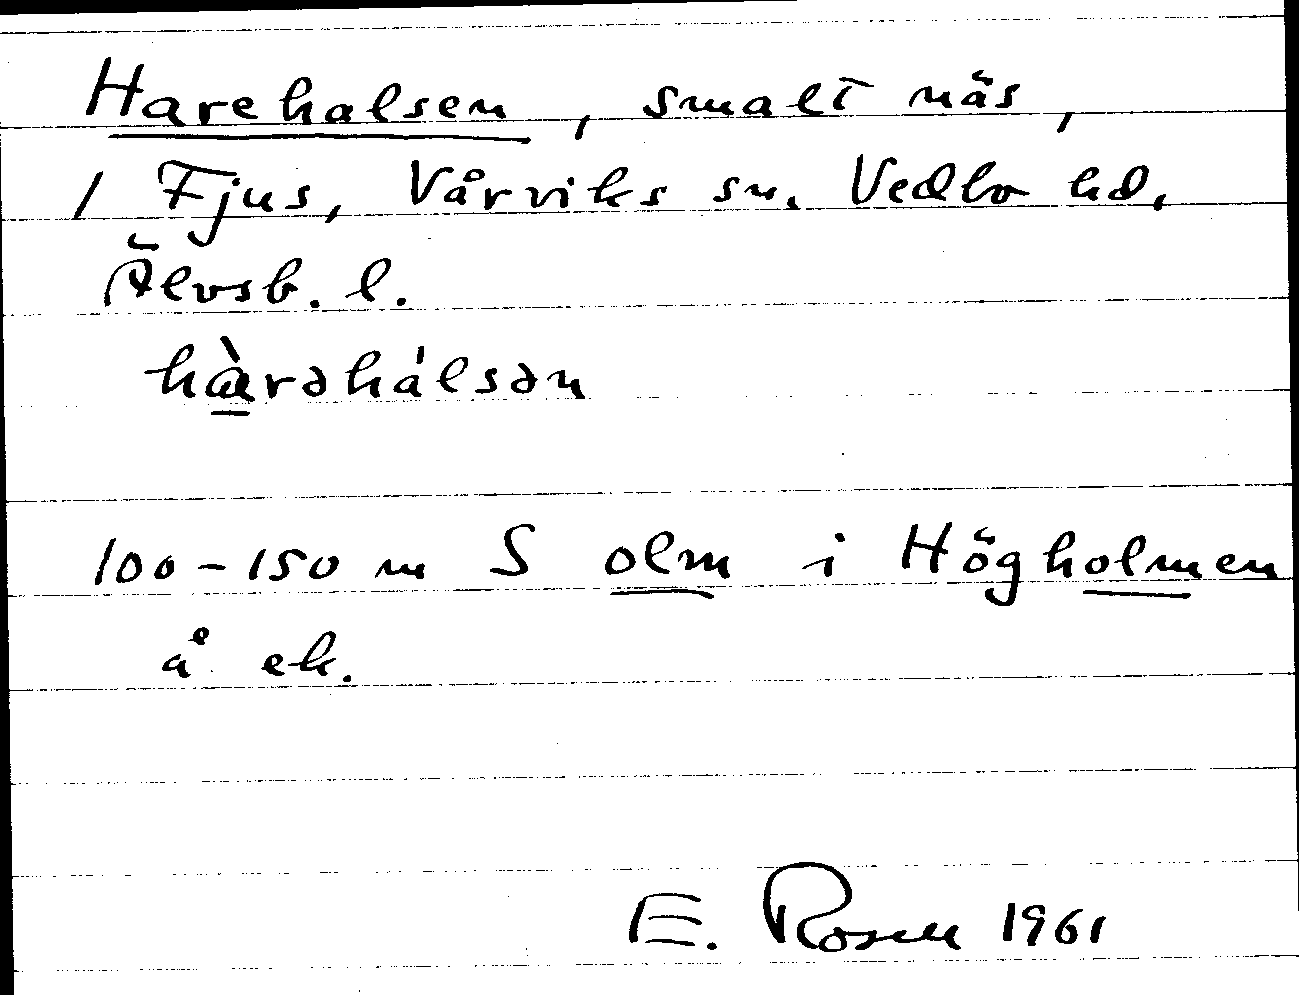 Harehalsen, smalt näs,
/ Fjus, Vårviks sn. Vedbo hd.
Älvsb. l.
hàrəhálsən
100-150 m S olm i Högholmen
å ek.
E. Rosell 1961